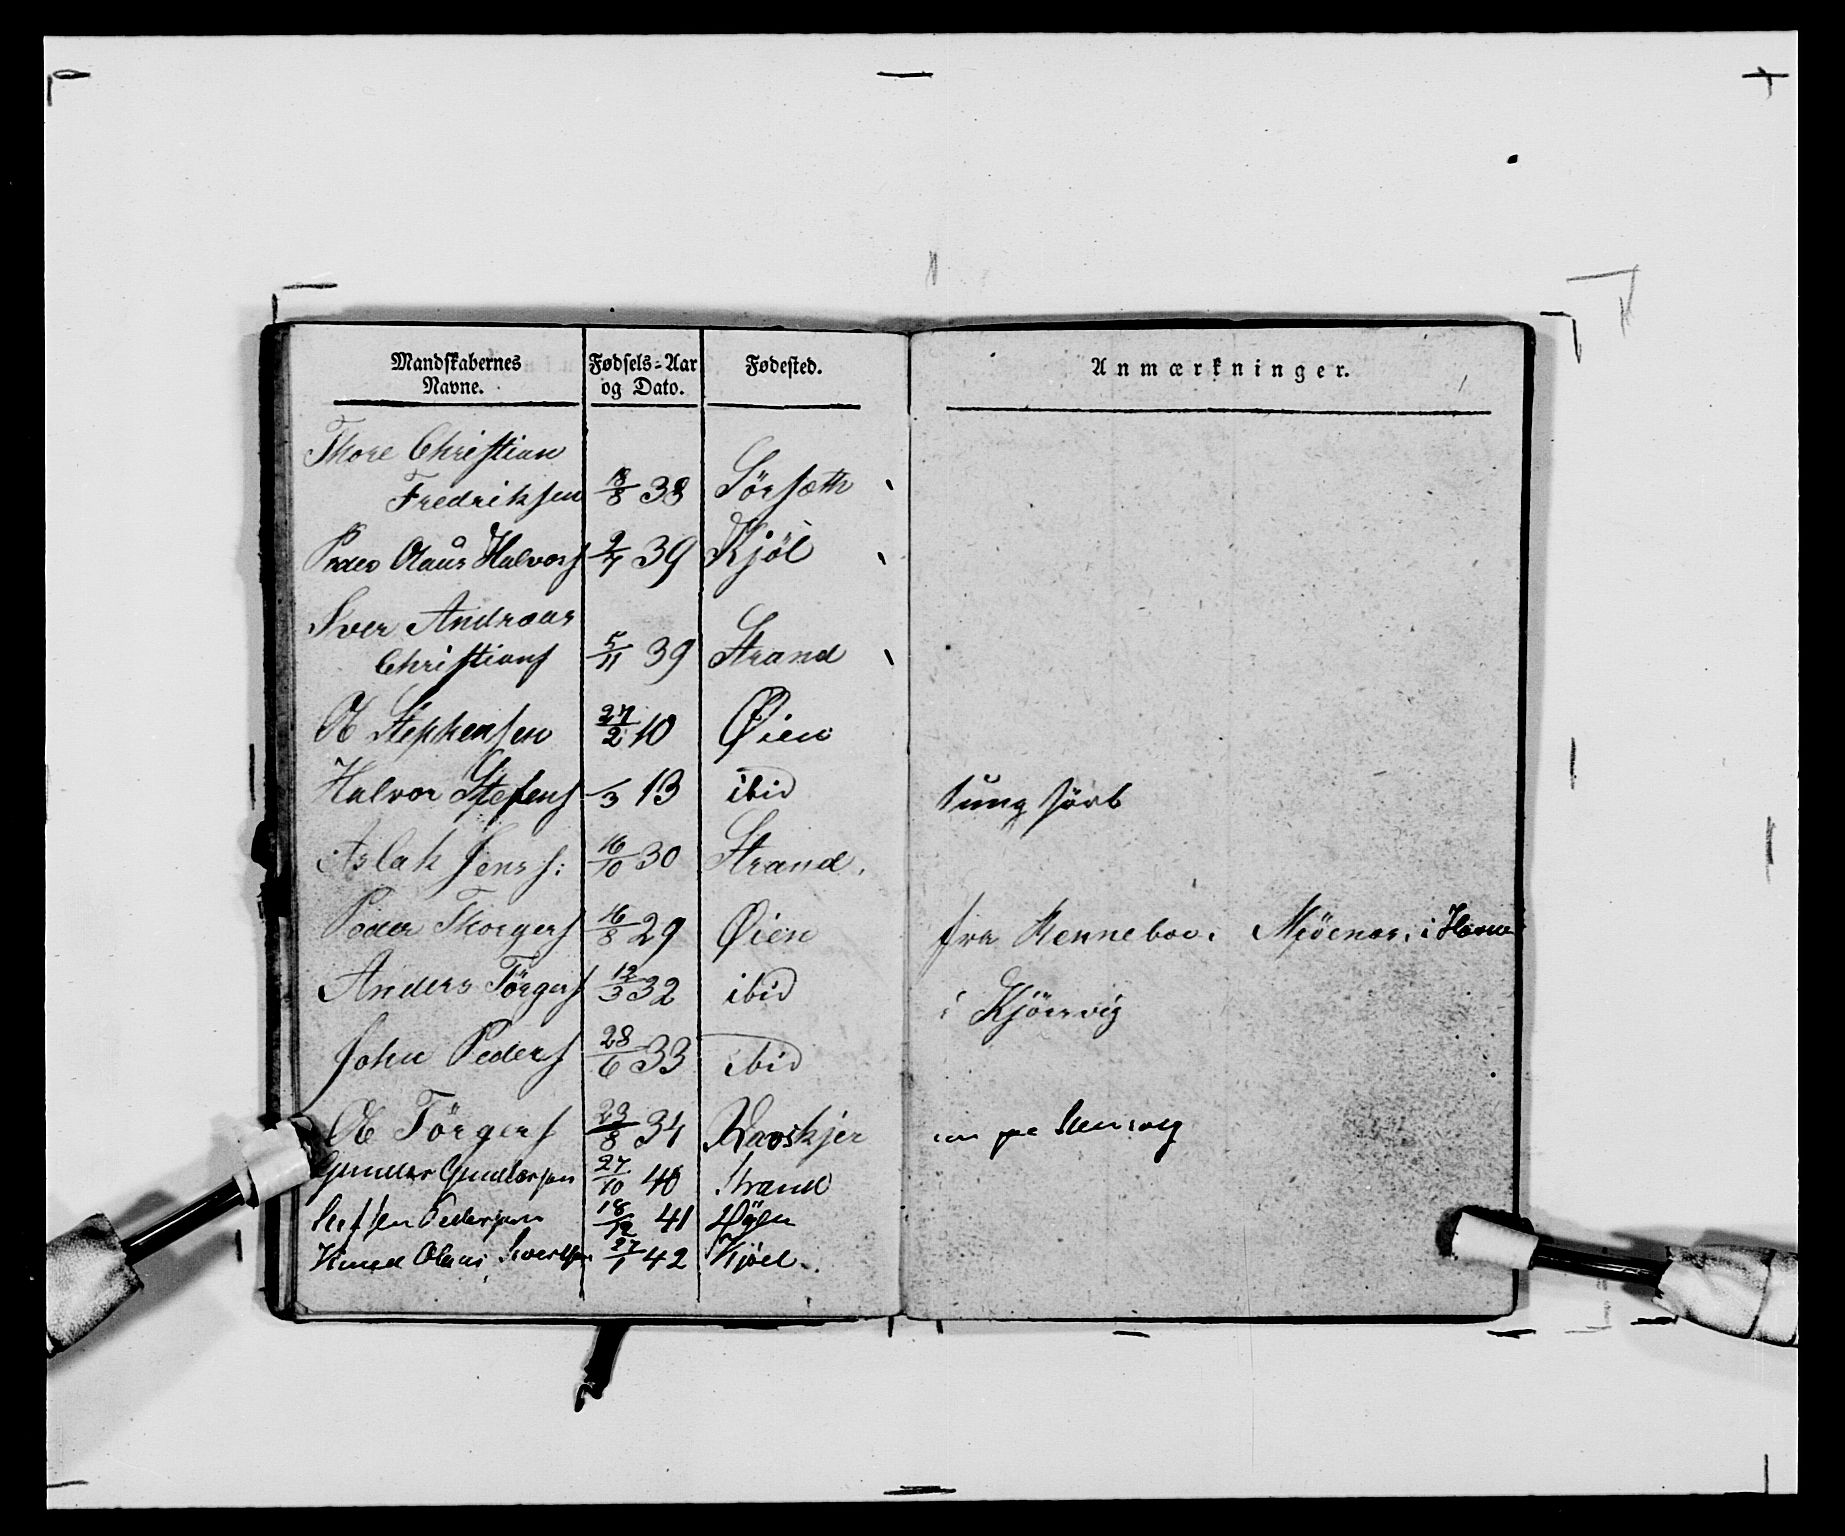 Mandskabernes Navne. Fødsels-Aar og Dato. Fødested. Anmærkninger.
Thore Christian
Fredriksen 18/8 38 Sörsæth
Peder Olaus Halvors 2/7 39 Kjöl
Iver Andreas
Christians 5/11 39 Strand
Ol Stephensen 27/2 10 Øien
Halvor Stefens /3 13 ibid tung hört
Aslak Jens s: 16/10 30 Strand.
Peder Thorgers 16/8 29 Øien fra Rennebo i
Anders Törgers 12/3 32 ibid i Kjörvig
John Peders 28/6 33 ibid
Ol Törgers 23/8 34
Gunder Gundersen 27/10 40 Strand
Steffen Pedersen 18/12 41 Øyen
Knud Olaus Sivertsen 27/1 42 Kjöel.